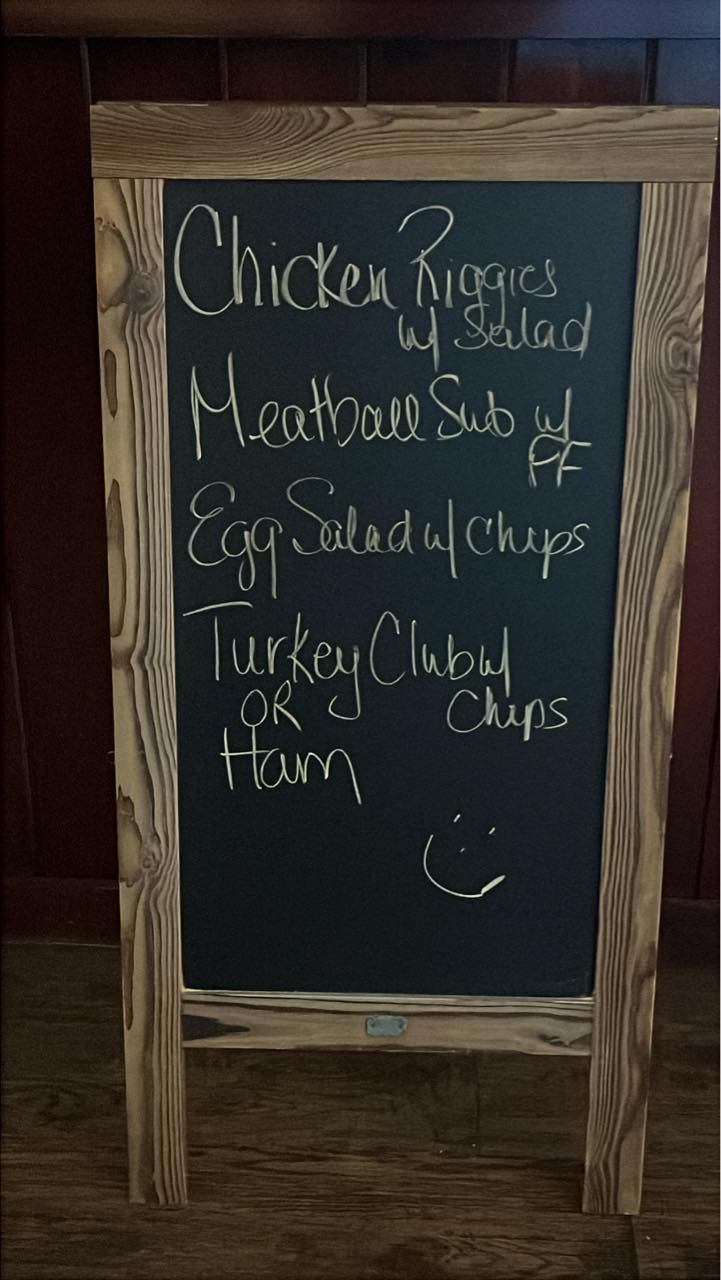 Chicken Riggies
w/ Salad
Meatball Sub w/
FF
Egg Salad w/ Chips
Turkey Club w/
OR Chips
Ham